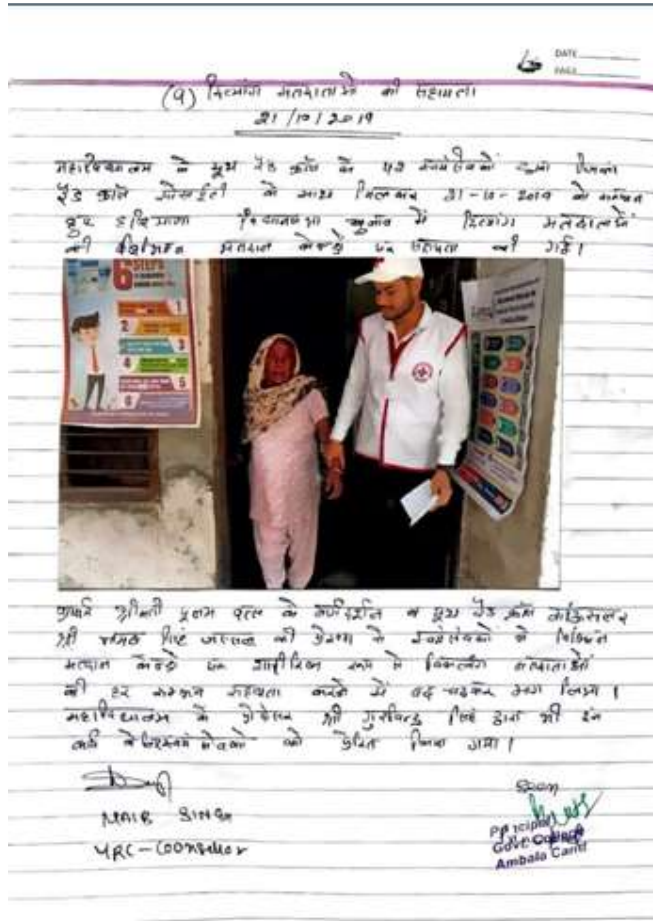 DATE
PAGE
(9) दिव्यांग मतदाताओं की सहायता
21/10/2019
महाविद्यालय के यूथ रैड क्रॉस के 42 स्वयंसेवकों द्वारा जिला
रैड क्रॉस सोसाईटी के साथ मिलकर 21-10-2019 को सम्पन्न
हुए हरियाणा विधानसभा चुनाव में दिव्यांग मतदाताओं
की विभिन्न मतदान केन्द्रों पर सहायता की गई।
6 STEPS
1
2
3
4
5
6
प्राचार्य श्रीमती पूनम वत्स के मार्गदर्शन व यूथ रैड क्रॉस काउंसलर
श्री सिंह की प्रेरणा से स्वयंसेवकों ने विभिन्न
मतदान केन्द्रों पर शारीरिक रूप से विकलांग मतदाताओं
की हर सम्भव सहायता करने में बढ़-चढ़कर भाग लिया।
महाविद्यालय के प्रोफेसर श्री गुरविन्द्र सिंह द्वारा भी इस
कार्य के लिए स्वयं सेवको को प्रेरित किया गया।
SINGH
YRC-Counsellor
Principal
Govt. College
Ambala Cantt